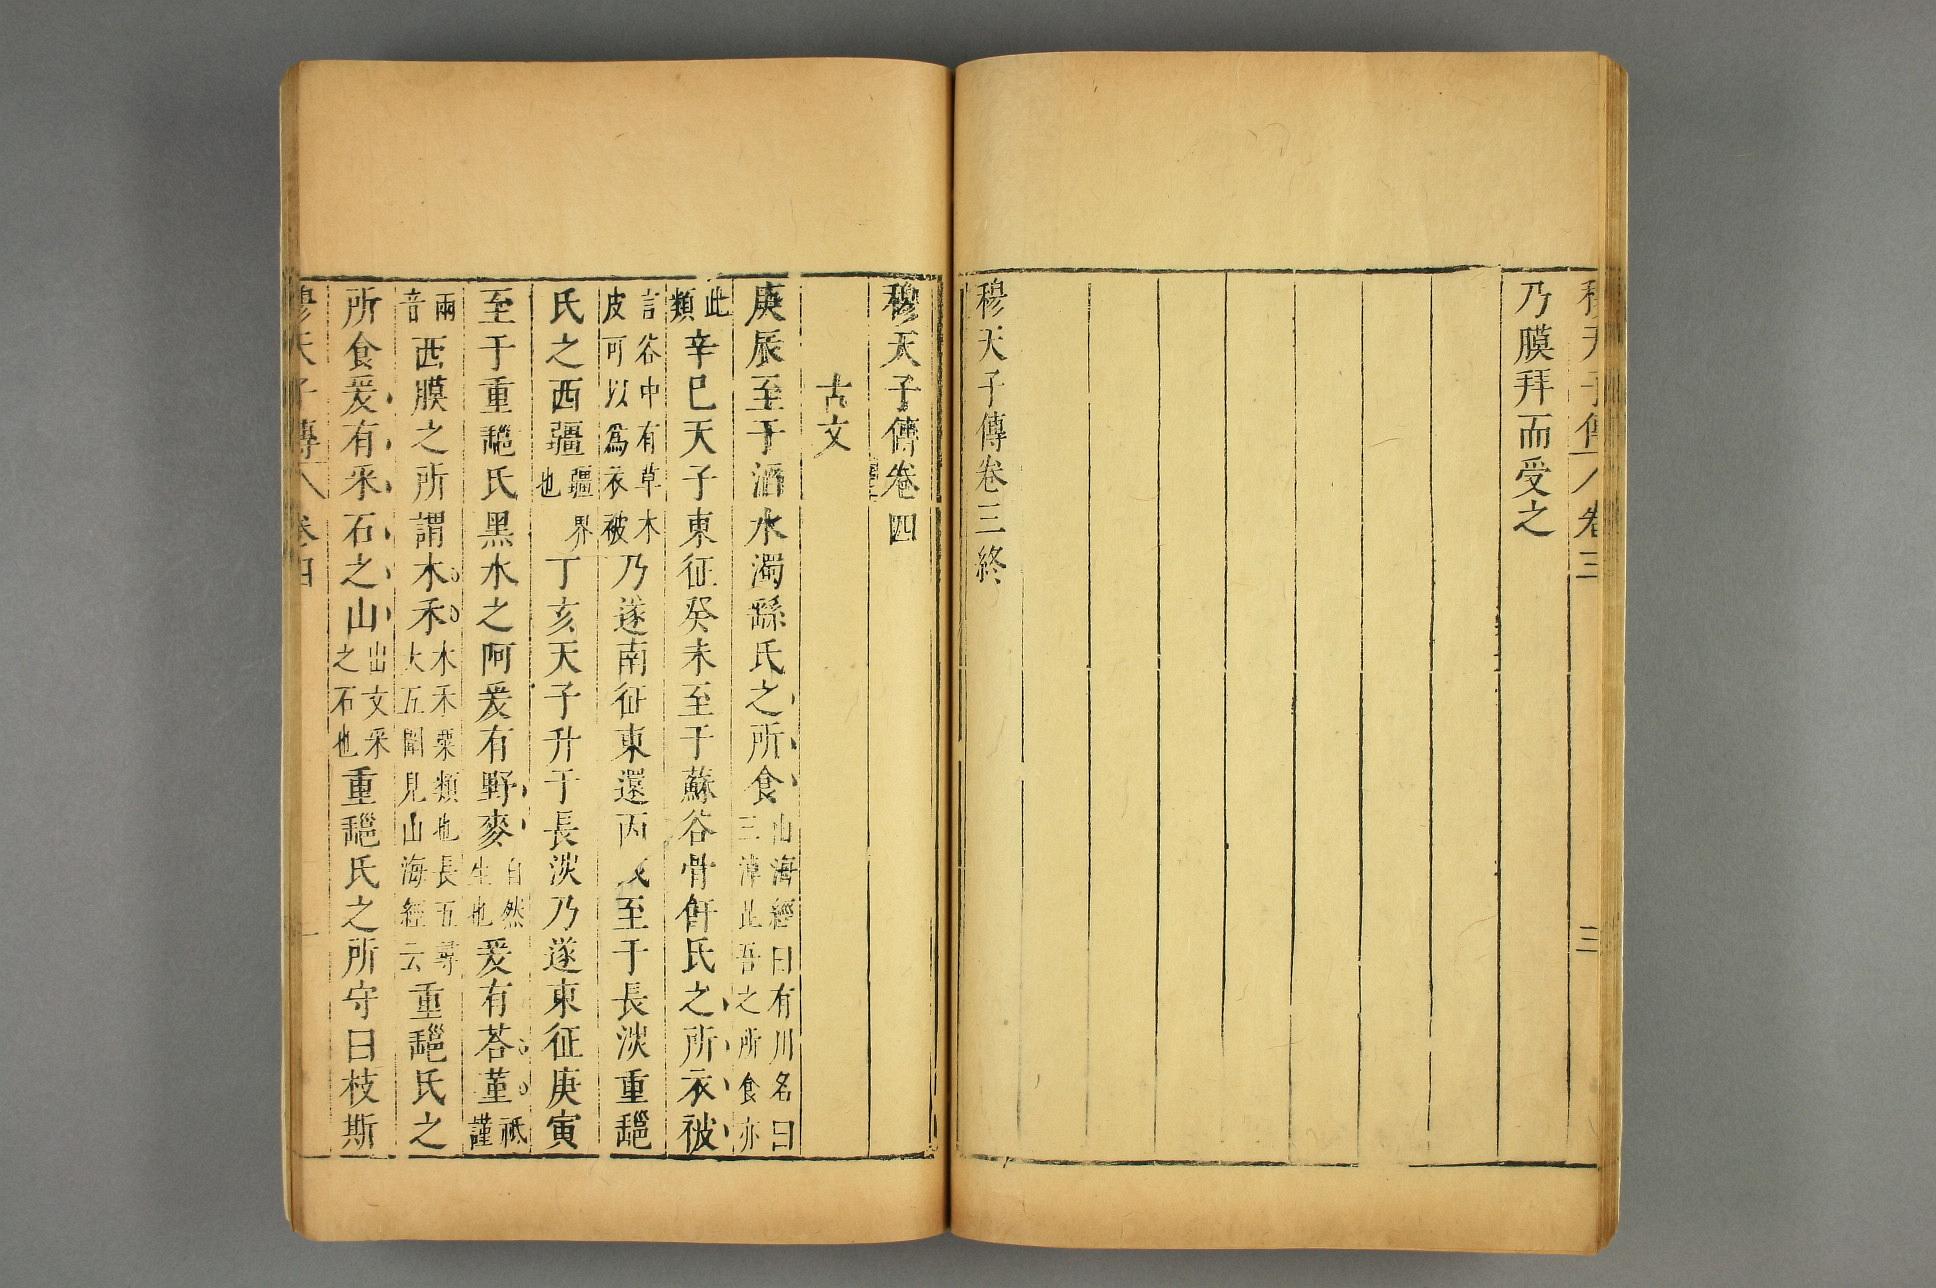 穆天子傳 卷三 三
乃膜拜而受之
穆天子傳卷三終
穆天子傳卷四
古文
庚辰至于滔水濁繇氏之所食山海經曰有川名曰三淖昆吾之所食亦
此類辛巳天子東征癸未至于蘇谷骨飦氏之所衣被
言谷中有草木皮可以爲衣被乃遂南征東還丙戌至于長淡重䣝
氏之西疆疆界也丁亥天子升于長淡乃遂東征庚寅
至于重䣝氏黑水之阿爰有野麥自然生也爰有荅堇祗謹
兩音西膜之所謂木禾木禾粟類也長五尋大五圍見山海經云重䣝氏之
所食爰有采石之山出文采之石也重䣝氏之所守曰枝斯
穆天子傳 卷四 一